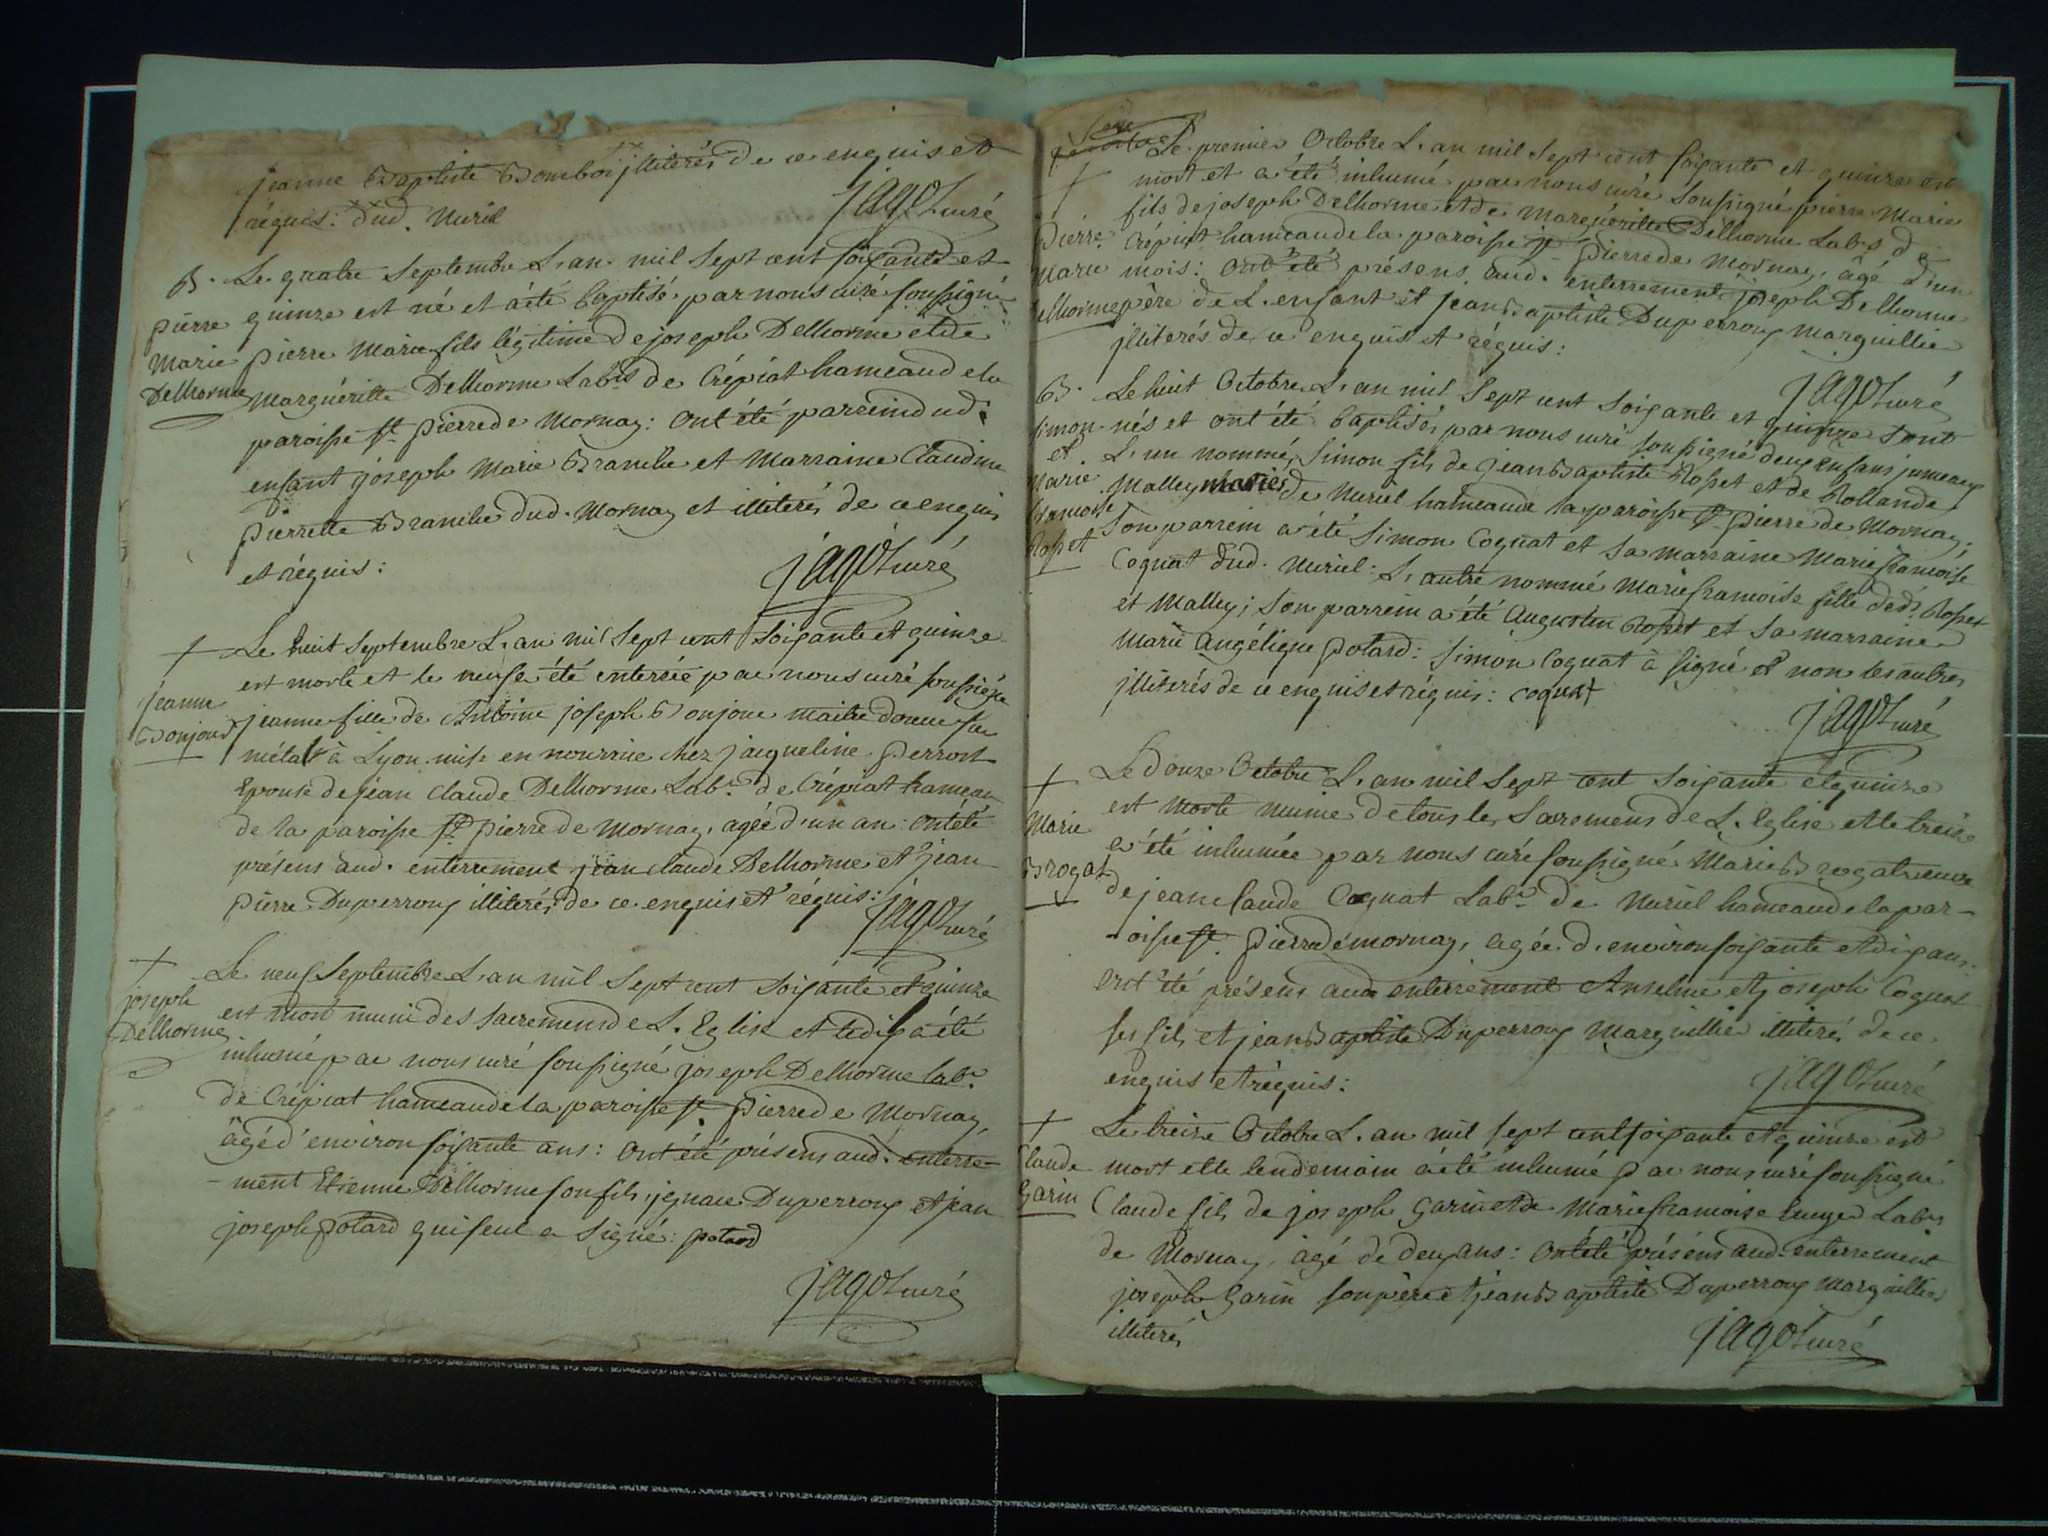 jeanne Baptiste Bomboi jlliterés de ce enquis et
réquis: dud. Nuriel
jagot curé
B. Le quatre Septembre L'an mil Sept cent soixante et
pierre quinze est né et à été baptisé par nous curé soussigné
Marie pierre Marie fils légitime de joseph Delhorme et de
Delhorme Marguéritte Delhorme Labrs de Crépiat hameau de la
paroisse St. pierre de Mornay: Ont été parrein dud.
enfant joseph Marie Branche et Marraine Claudine
pierrette Branche dud. Mornay et illiterés de ce enquis
et réquis:
jagot curé
+ Le huit Septembre L'an mil Sept cent Soixante et quinze
est morte et le neuf a été enterrée par nous curé soussigné
jeanne jeanne fille de Antoine joseph Bonjour maitre doreur sur
Bonjour métal à Lyon mise en nourrice chez jacqueline perrost
Epouse de jean Claude Delhorme Labr. de Crépiat hameau
de la paroisse St pierre de Mornay, agée d'un an: ont été
présens aud. enterrement jean claude Delhorme et jean
pierre Duperrouy illiterés de ce enquis et réquis:
jagot curé
+ Le neuf Septembre L'an mil Sept cent Soixante et quinze
joseph est mort muni des sacremens de L'Eglise et le dix a été
Delhorme inhumé par nous curé soussigné joseph Delhorme labr.
de Crépiat hameau de la paroisse St. pierre de Mornay
âgé d'environ soixante ans: ont été présens aud. enterre-
-ment Etienne Delhorme son fils, jgnace Duperrouy et jean
joseph potard qui seul a signé: potard
jagot curé
Le premier Octobre L'an mil Sept cent soixante et quinze est
+ mort et a été inhumé par nous curé soussigné pierre Marie
fils de joseph Delhorme et de Marguéritte Delhorme Labrs de
pierre Crépiat hameau de la paroisse St pierre de Mornay, âgé d'un
Marie mois: Ont été présens aud. enterrement joseph Delhorme
Delhorme père de L'enfant et jean Baptiste Duperrouy Marguillier
jlliterés de ce enquis et réquis:
jagot curé
B. Le huit Octobre L'an mil Sept cent soixante et quinze sont
simon nés et ont été baptisés par nous curé soussigné deux enfans jumeaux
et L'un nommé Simon fils de jean Baptiste Rosset et de Rollande
Marie Malley mariés de Nuriel hameau de la paroisse St. pierre de Mornay;
francoise son parrein a été Simon Cognat et sa marraine Marie francoise
Rosset Cognat dud. Nuriel: L'autre nommé Marie francoise fille desds Rosset
et Malley; son parrein a été Augustin Rosset et sa marraine
Marie Angélique potard: Simon Cognat à signé et non les autres
jlliterés de ce enquis et réquis: cognat
jagot curé
+ Le douze Octobre L'an mil Sept cent soixante et quinze
est morte munie de tous les Sacremens de L'Eglise et le treize
Marie a été inhumée par nous curé soussigné Marie Brogat veuve
Brogat de jean claude Cognat Labr. de Nuriel hameau de la par-
-oisse St. pierre de mornay, agée d'environ soixante et dix ans:
ont été présens aud. enterrement Anselme et joseph Cognat
ses fils et jean Baptiste Duperrouy Marguillier illiterés de ce
enquis et réquis:
jagot curé
+ Le treize Octobre L'an mil sept cent soixante et quinze est
Claude mort et le lendemain à été inhumé par nous curé soussigné
Garin Claude fils de joseph Garin et de Marie francoise Labrs
de Mornay, âgé de deux ans: Ont été présens aud. enterrement
joseph Garin son père et jean Baptiste Duperrouy Marguillier
illiterés
jagot curé